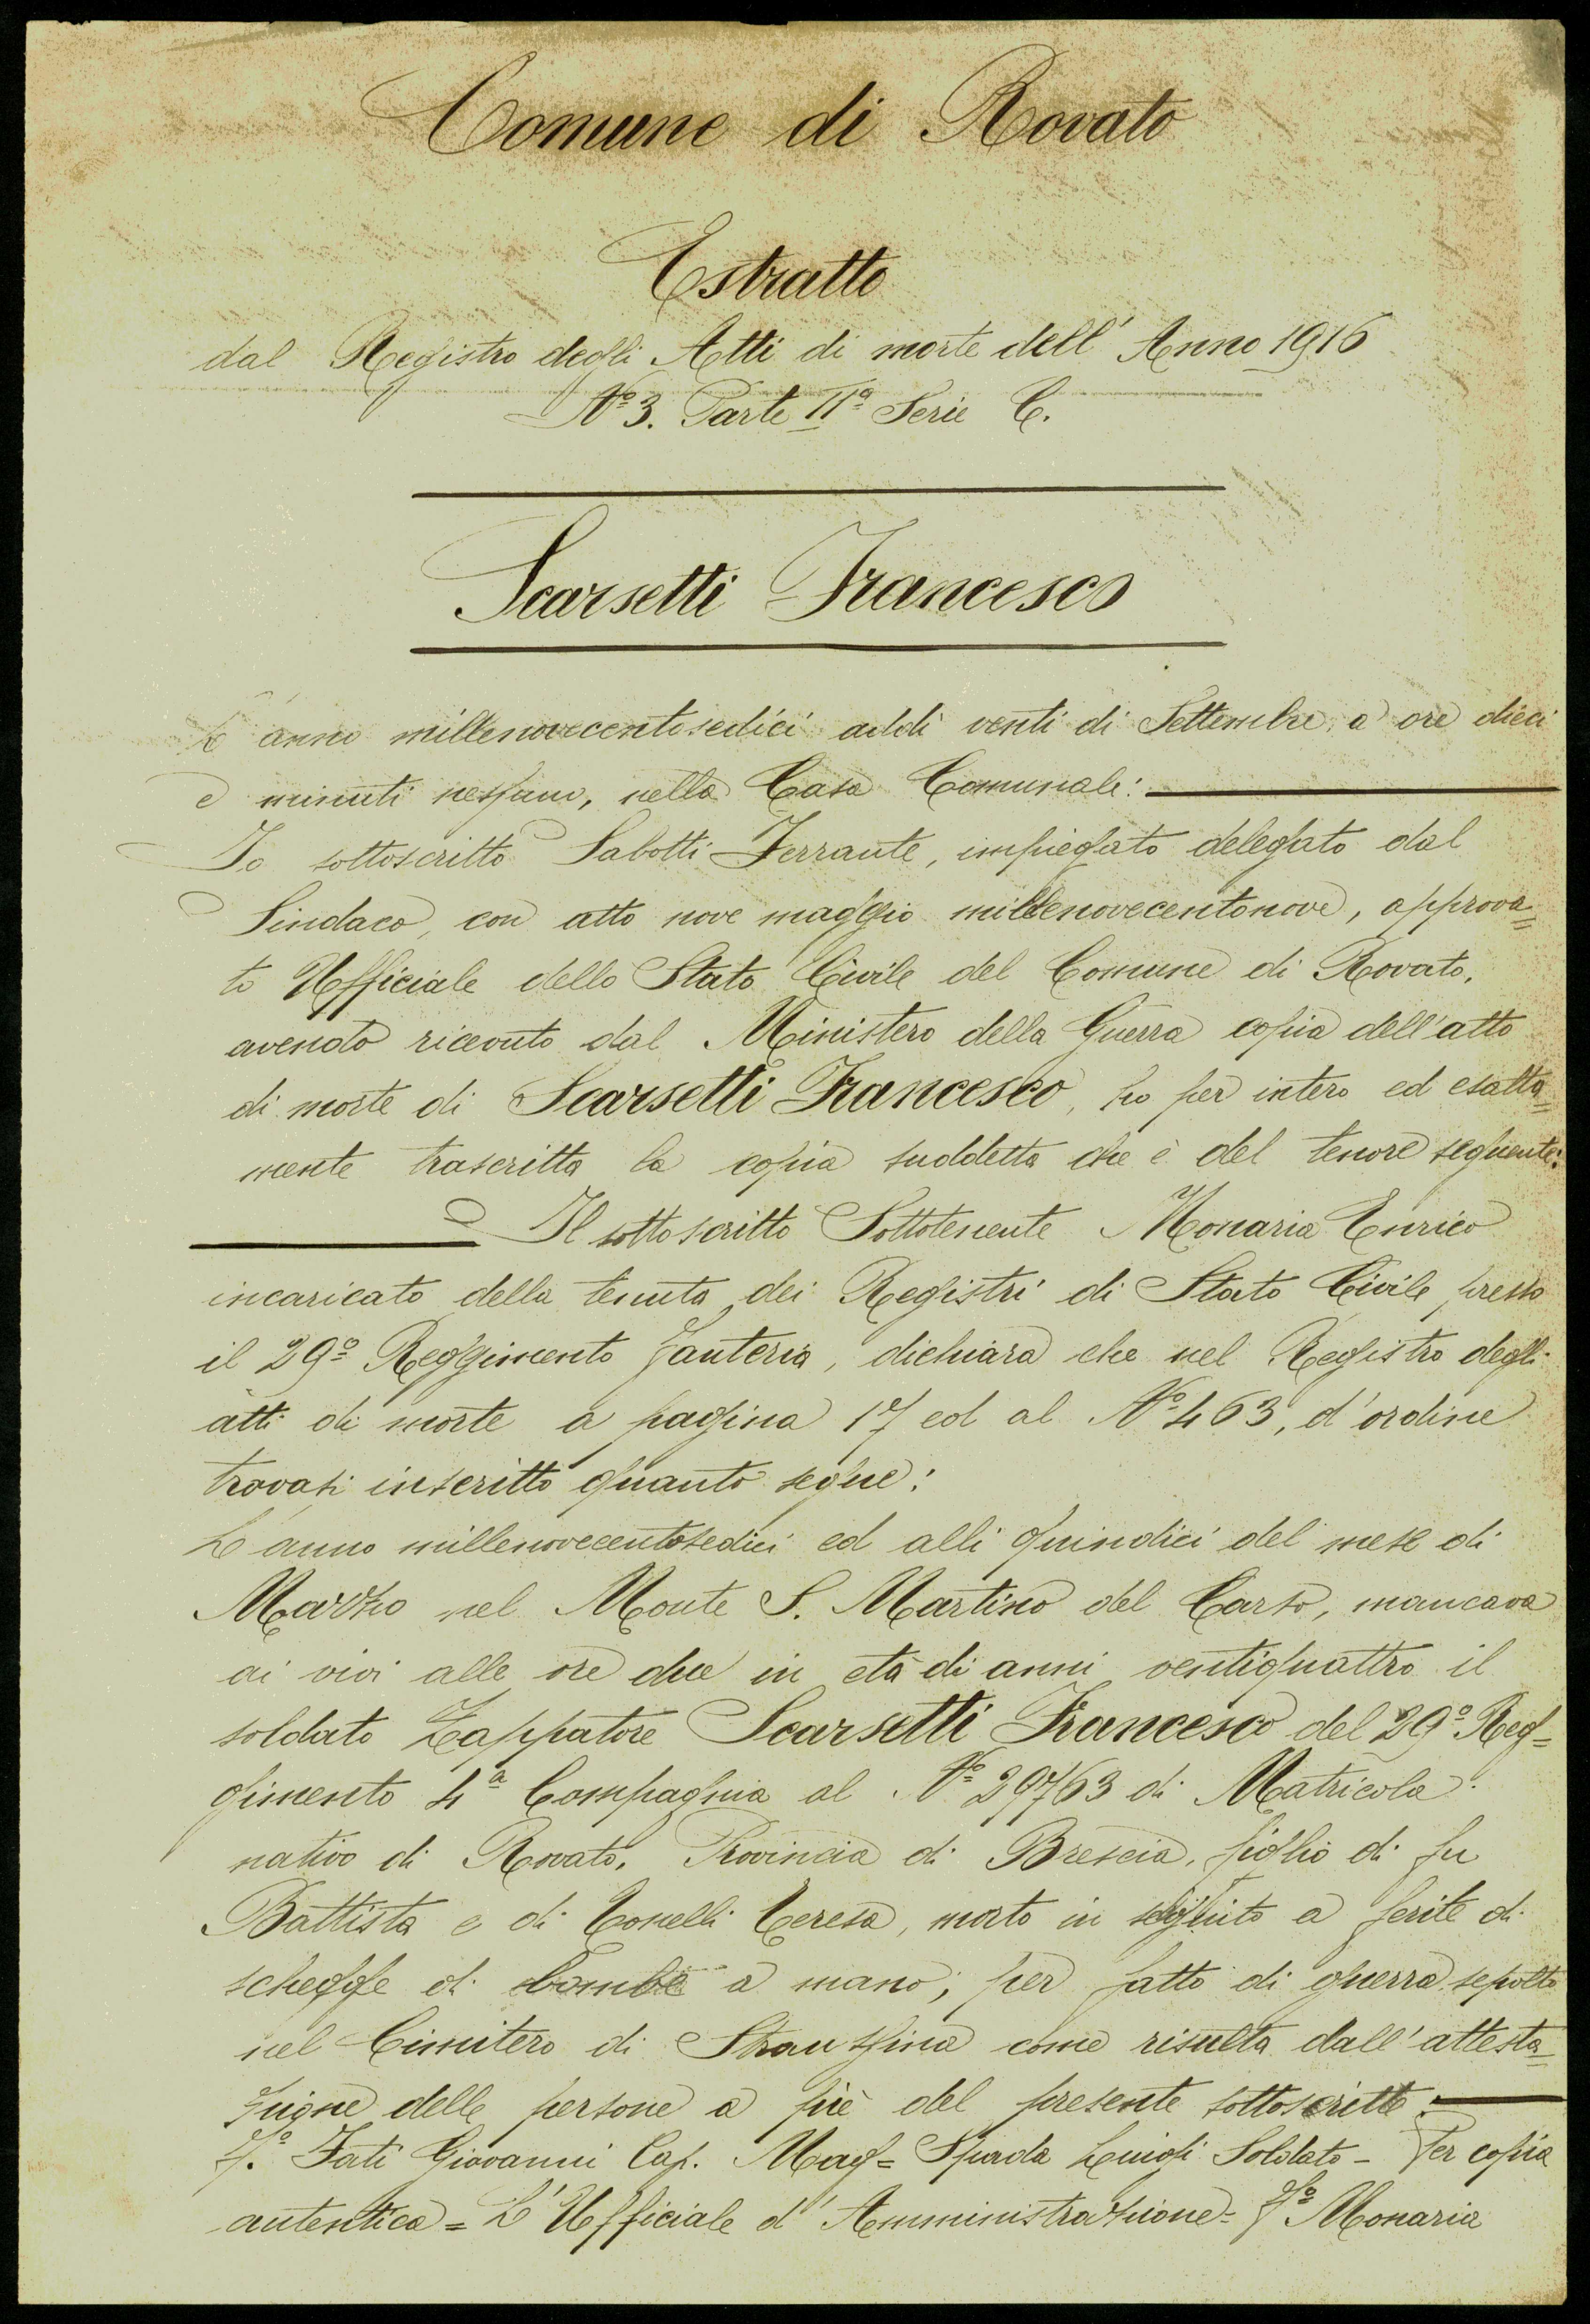 Comune di Rovato
Estratto
dal Registro degli Atti di morte dell' Anno 1916
N.º 3. Parte IIª Serie C.
Scarsetti Francesco
L'anno millenovecentosedici addì venti di Settembre, a ore dieci
e minuti nessuno, nella Casa Comunale:
Io sottoscritto Sabotti Ferrante, impiegato delegato dal
Sindaco, con atto nove maggio millenovecentonove, approva=
to Ufficiale dello Stato Civile del Comune di Rovato,
avendo ricevuto dal Ministero della Guerra copia dell'atto
di morte di Scarsetti Francesco, ho per intero ed esatta=
mente trascritta la copia suddetta che è del tenore seguente:
Il sottoscritto Sottotenente Monaria Enrico
incaricato della tenuta dei Registri di Stato Civile presso
il 29º Reggimento Fanteria, dichiara che nel Registro degli
atti di morte a pagina 17 ed al Nº 463, d'ordine
trovasi inscritto quanto segue:
L'anno millenovecentosedici ed alli quindici del mese di
Marzo nel Monte S. Martino del Carso, mancava
ai vivi alle ore due in età di anni ventiquattro il
soldato Zappatore Scarsetti Francesco del 29º Reg=
gimento 4ª Compagnia al Nº 29763 di Matricola
nativo di Rovato, Provincia di Brescia, figlio di fu
Battista e di Tonelli Teresa, morto in seguito a ferite di
schegge di bombe a mano; per fatto di guerra, sepolto
nel Cimitero di come risulta dall'attesta=
zione delle persone a piè del presente sottoscritte:
Fº. Fati Giovanni Cap. Mag= Spada Luigi Soldato - Per copia
autentica = L'Ufficiale d'Amministrazione = Fº Monaria